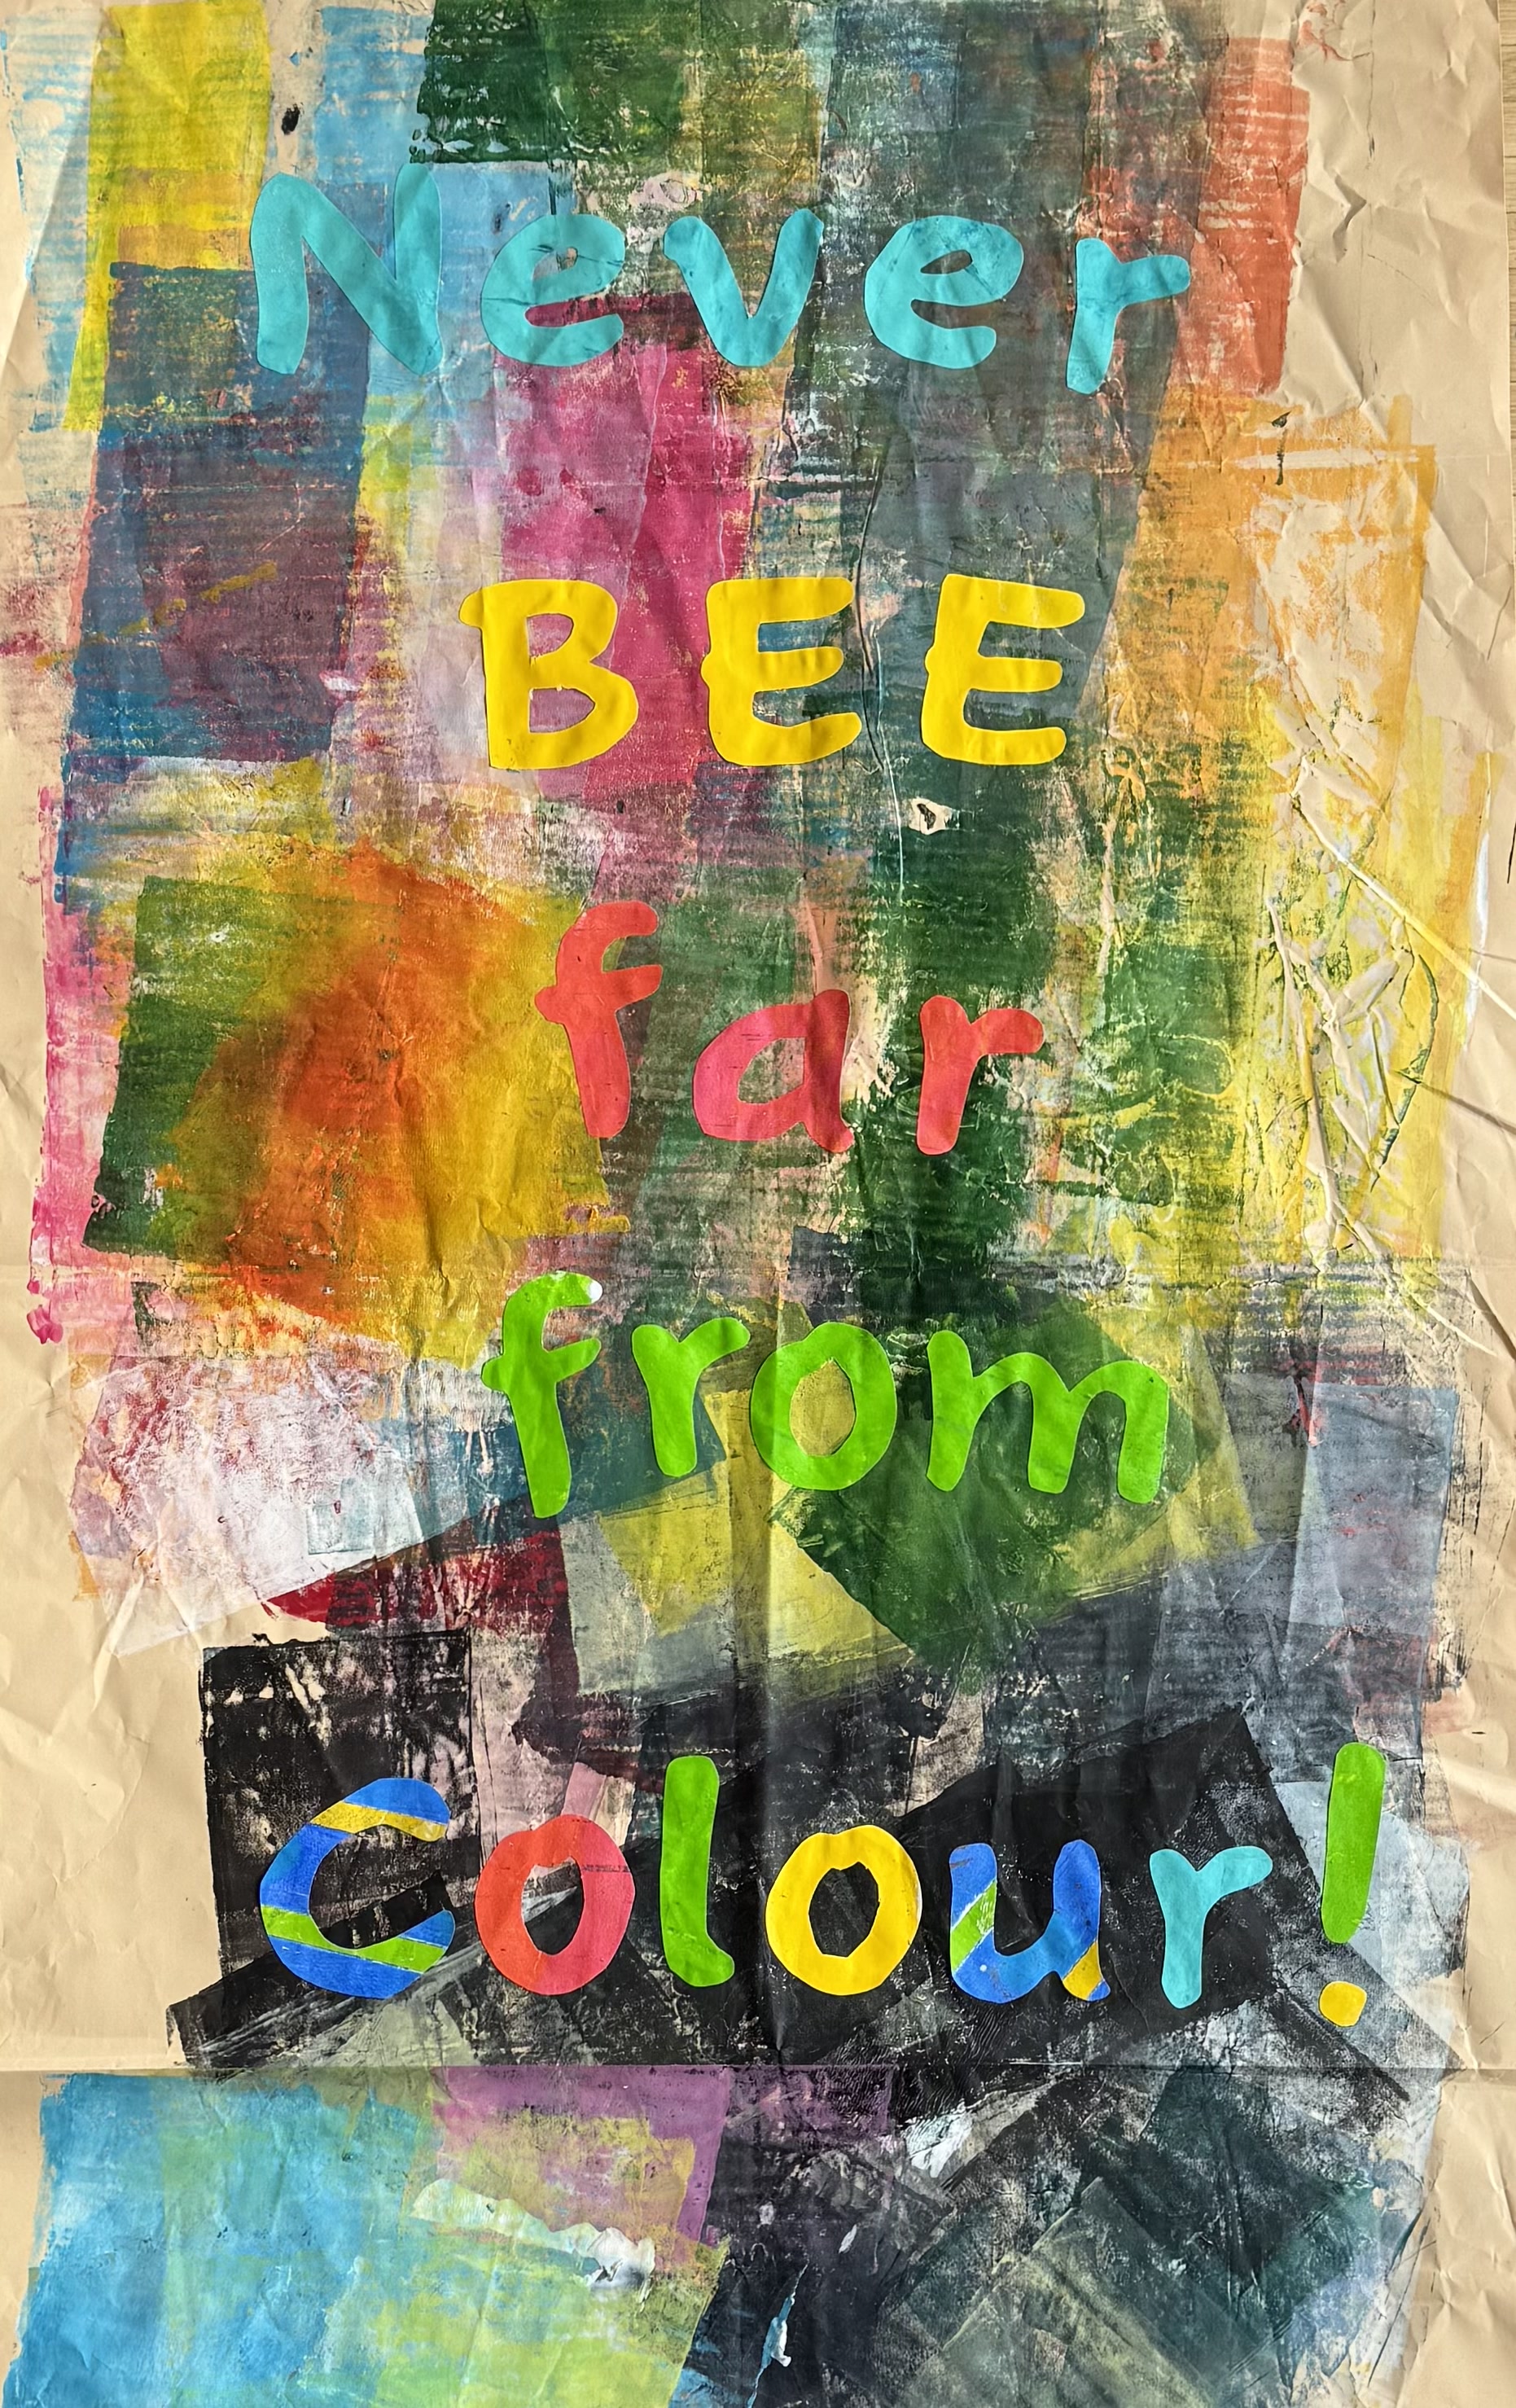 Never
BEE
far
from
Colour!